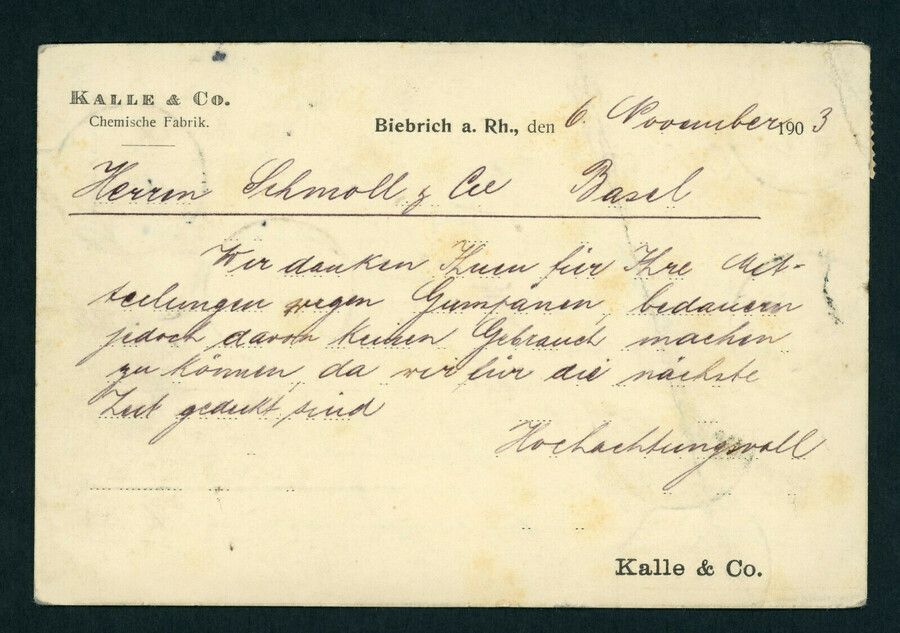 KALLE & Co.
Chemische Fabrik.
Biebrich a. Rh., den 6. November 1903
Herren Schmoll & Cie Basel
Wir danken Ihnen für Ihre Mit-
teilungen wegen bedauern
jedoch davon keinen Gebrauch machen
zu können, da wir für die nächste
Zeit gedeckt sind
Hochachtungsvoll
Kalle & Co.